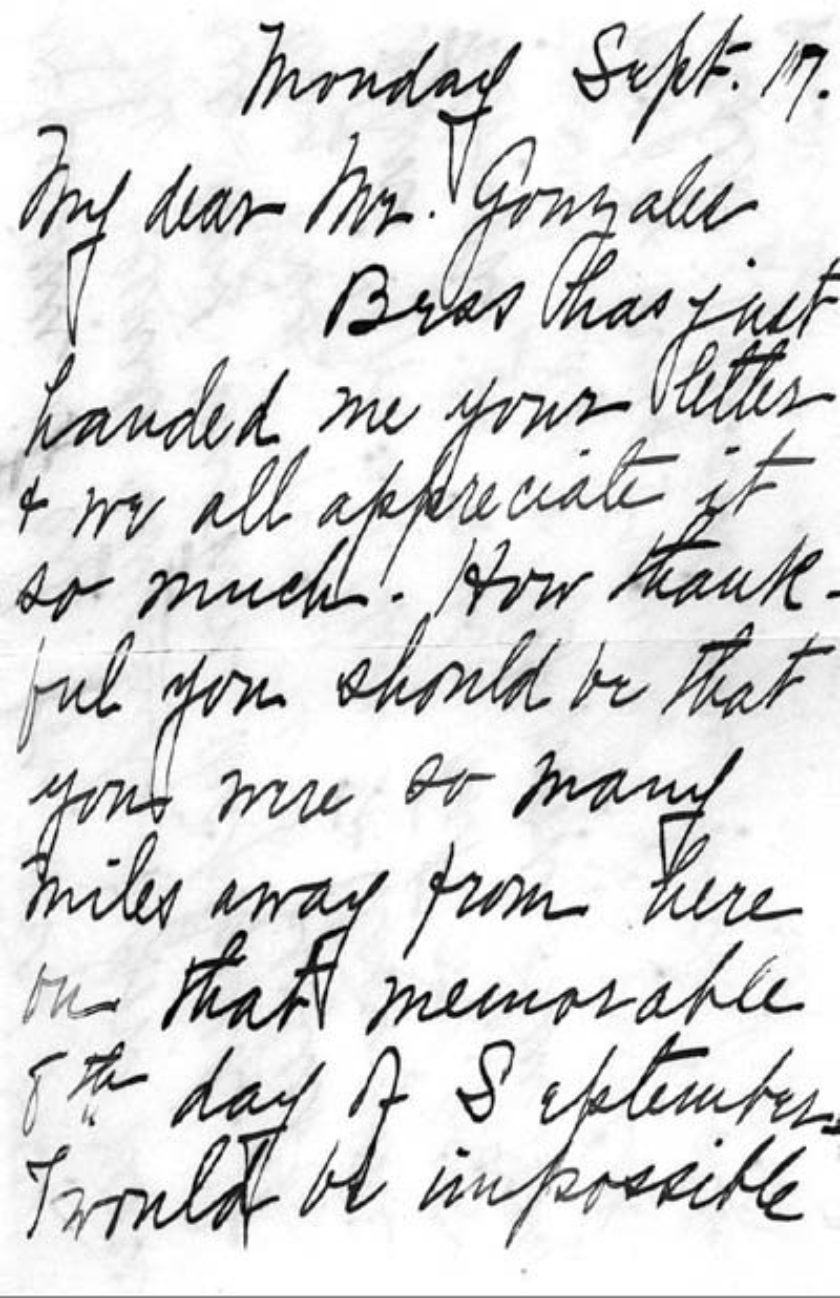 Monday Sept. 17.
My dear Mr. Gonzales
Bess has just
handed me your letter
& we all appreciate it
so much. How thank-
ful you should be that
you were so many
miles away from here
on that memorable
8th day of September.
would be impossible